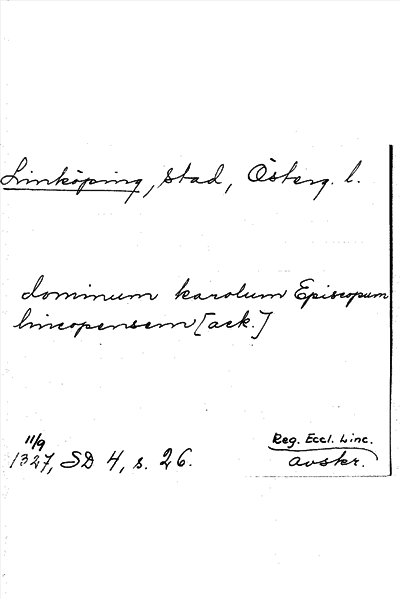 Linköping, stad, Österg. l.
dominum karolum Episcopum
lincopensem [ack.]
11/9
1327, SD 4, s. 26.
Reg. Eccl. Linc.
avskr.